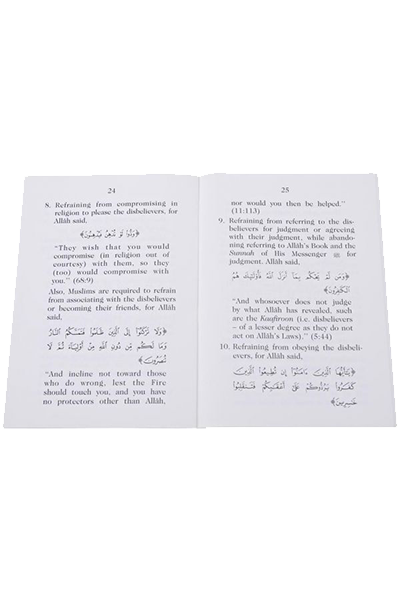 24
8. Refraining from compromising in
religion to please the disbelievers, for
Allâh said,
﴿وَدُّوا۟ لَوْ تُدْهِنُ فَيُدْهِنُونَ﴾
“They wish that you would
compromise (in religion out of
courtesy) with them, so they
(too) would compromise with
you.” (68:9)
Also, Muslims are required to refrain
from associating with the disbelievers
or becoming their friends, for Allâh
said,
﴿وَلَا تَرْكَنُوٓا۟ إِلَى ٱلَّذِينَ ظَلَمُوا۟ فَتَمَسَّكُمُ ٱلنَّارُ
وَمَا لَكُم مِّن دُونِ ٱللَّهِ مِنْ أَوْلِيَآءَ ثُمَّ لَا
نُنصَرُونَ﴾
“And incline not toward those
who do wrong, lest the Fire
should touch you, and you have
no protectors other than Allâh,
25
nor would you then be helped.”
(11:113)
9. Refraining from referring to the dis-
believers for judgment or agreeing
with their judgment, while abando-
ning referring to Allâh's Book and the
Sunnah of His Messenger ﷺ for
judgment. Allâh said,
﴿وَمَن لَّمْ يَحْكُم بِمَآ أَنزَلَ ٱللَّهُ فَأُو۟لَـٰٓئِكَ هُمُ
ٱلْكَـٰفِرُونَ﴾
“And whosoever does not judge
by what Allâh has revealed, such
are the Kaafiroon (i.e. disbelievers
– of a lesser degree as they do not
act on Allâh's Laws).” (5:44)
10. Refraining from obeying the disbeli-
evers, for Allâh said,
﴿يَـٰٓأَيُّهَا ٱلَّذِينَ ءَامَنُوٓا۟ إِن تُطِيعُوا۟ ٱلَّذِينَ
كَفَرُوا۟ يَرُدُّوكُمْ عَلَىٰٓ أَعْقَـٰبِكُمْ فَتَنقَلِبُوا۟
خَـٰسِرِينَ﴾